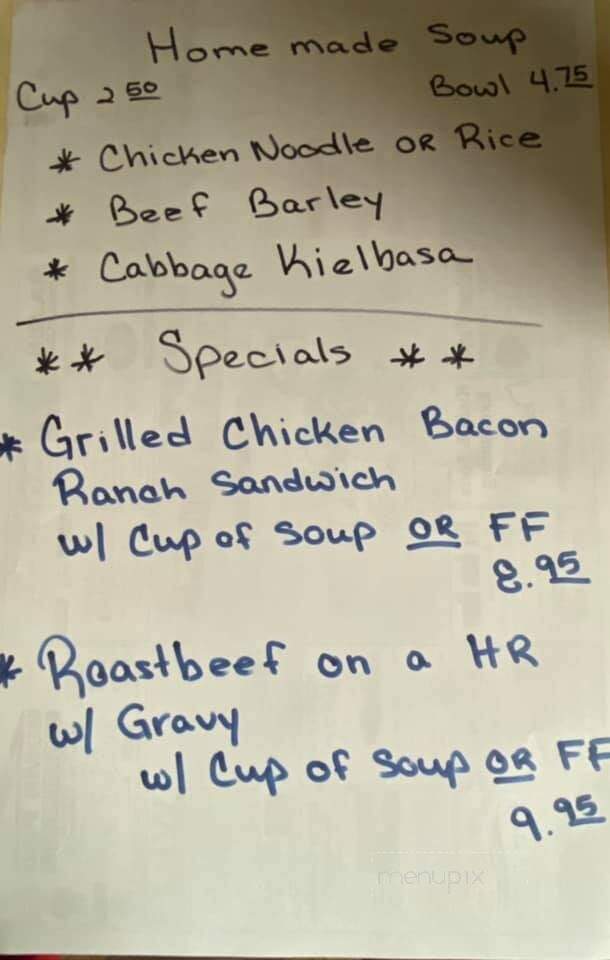 Home made Soup
Cup 2 50 Bowl 4.75
* Chicken Noodle OR Rice
* Beef Barley
* Cabbage Kielbasa
** Specials **
* Grilled Chicken Bacon
Ranch Sandwich
w/ Cup of Soup OR FF
8.95
* Roastbeef on a HR
w/ Gravy
w/ Cup of Soup OR FF
9.95
menupix